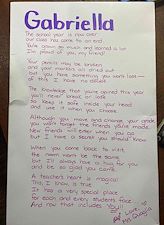 Gabriella
The school year is now over
our class has come to an end.
We've grown so much and learned a lot
I'm proud of you, my friend!
Your pencils may be broken
and your markers all dried out
but you have something you won't lose
of this I have no doubt
The knowledge that you've gained this year
you'll never break or lose
So keep it safe inside your head
and use it when you choose.
Although you move and change your grade
you won't forget the friends you've made.
New friends will enter when you go
but I have a secret you should know
When you come back to visit
the room won't be the same
but I'll always have a hug for you
and be so glad you came.
A teacher's heart is magical
This, I know is true
It has a very special place
for each and every students face
And now that includes You!!